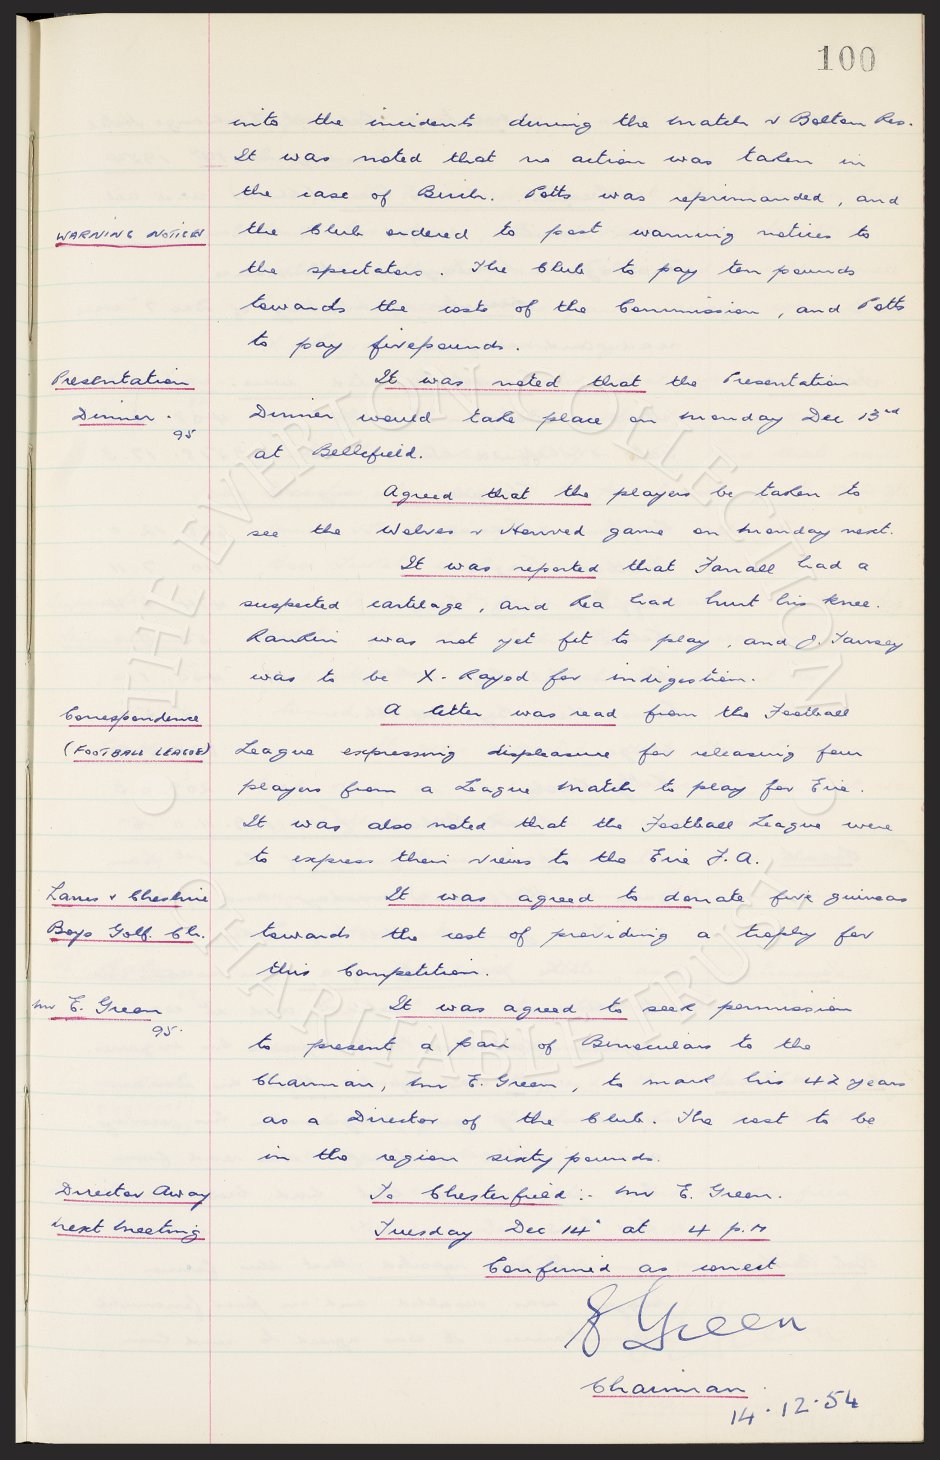 100
into the incidents during the match v Bolton Res.
It was noted that no action was taken in
the case of Birch. Potts was reprimanded, and
WARNING NOTICES the Club ordered to post warning notices to
the spectators. The Club to pay ten pounds
towards the costs of the Commission, and Potts
to pay fivepounds.
Presentation It was noted that the Presentation
Dinner. 95 Dinner would take place on Monday Dec 13rd
at Bellefield.
Agreed that the players be taken to
see the Wolves v Honved game on Monday next.
It was reported that Farrall had a
suspected cartilage, and Rea had hurt his knee.
Rankin was not yet fit to play, and J. Tansey
was to be X-Rayed for indigestion.
Correspondence A letter was read from the Football
(FOOTBALL LEAGUE) League expressing displeasure for releasing four
players from a League Match to play for Eire.
It was also noted that the Football League were
to express their views to the Eire F.A.
Lancs & Cheshire It was agreed to donate five guineas
Boys Golf. Ch. towards the cost of providing a trophy for
this Competition.
Mr E. Green 95. It was agreed to seek permission
to present a pair of Binoculars to the
Chairman, Mr E. Green, to mark his 42 years
as a Director of the Club. The cost to be
in the region sixty pounds.
Director Away To Chesterfield :- Mr E. Green.
Next Meeting Tuesday Dec 14" at 4 p.m
Confirmed as correct
E Green
Chairman.
14.12.54
© THE EVERTON COLLECTION
CHARITABLE TRUST